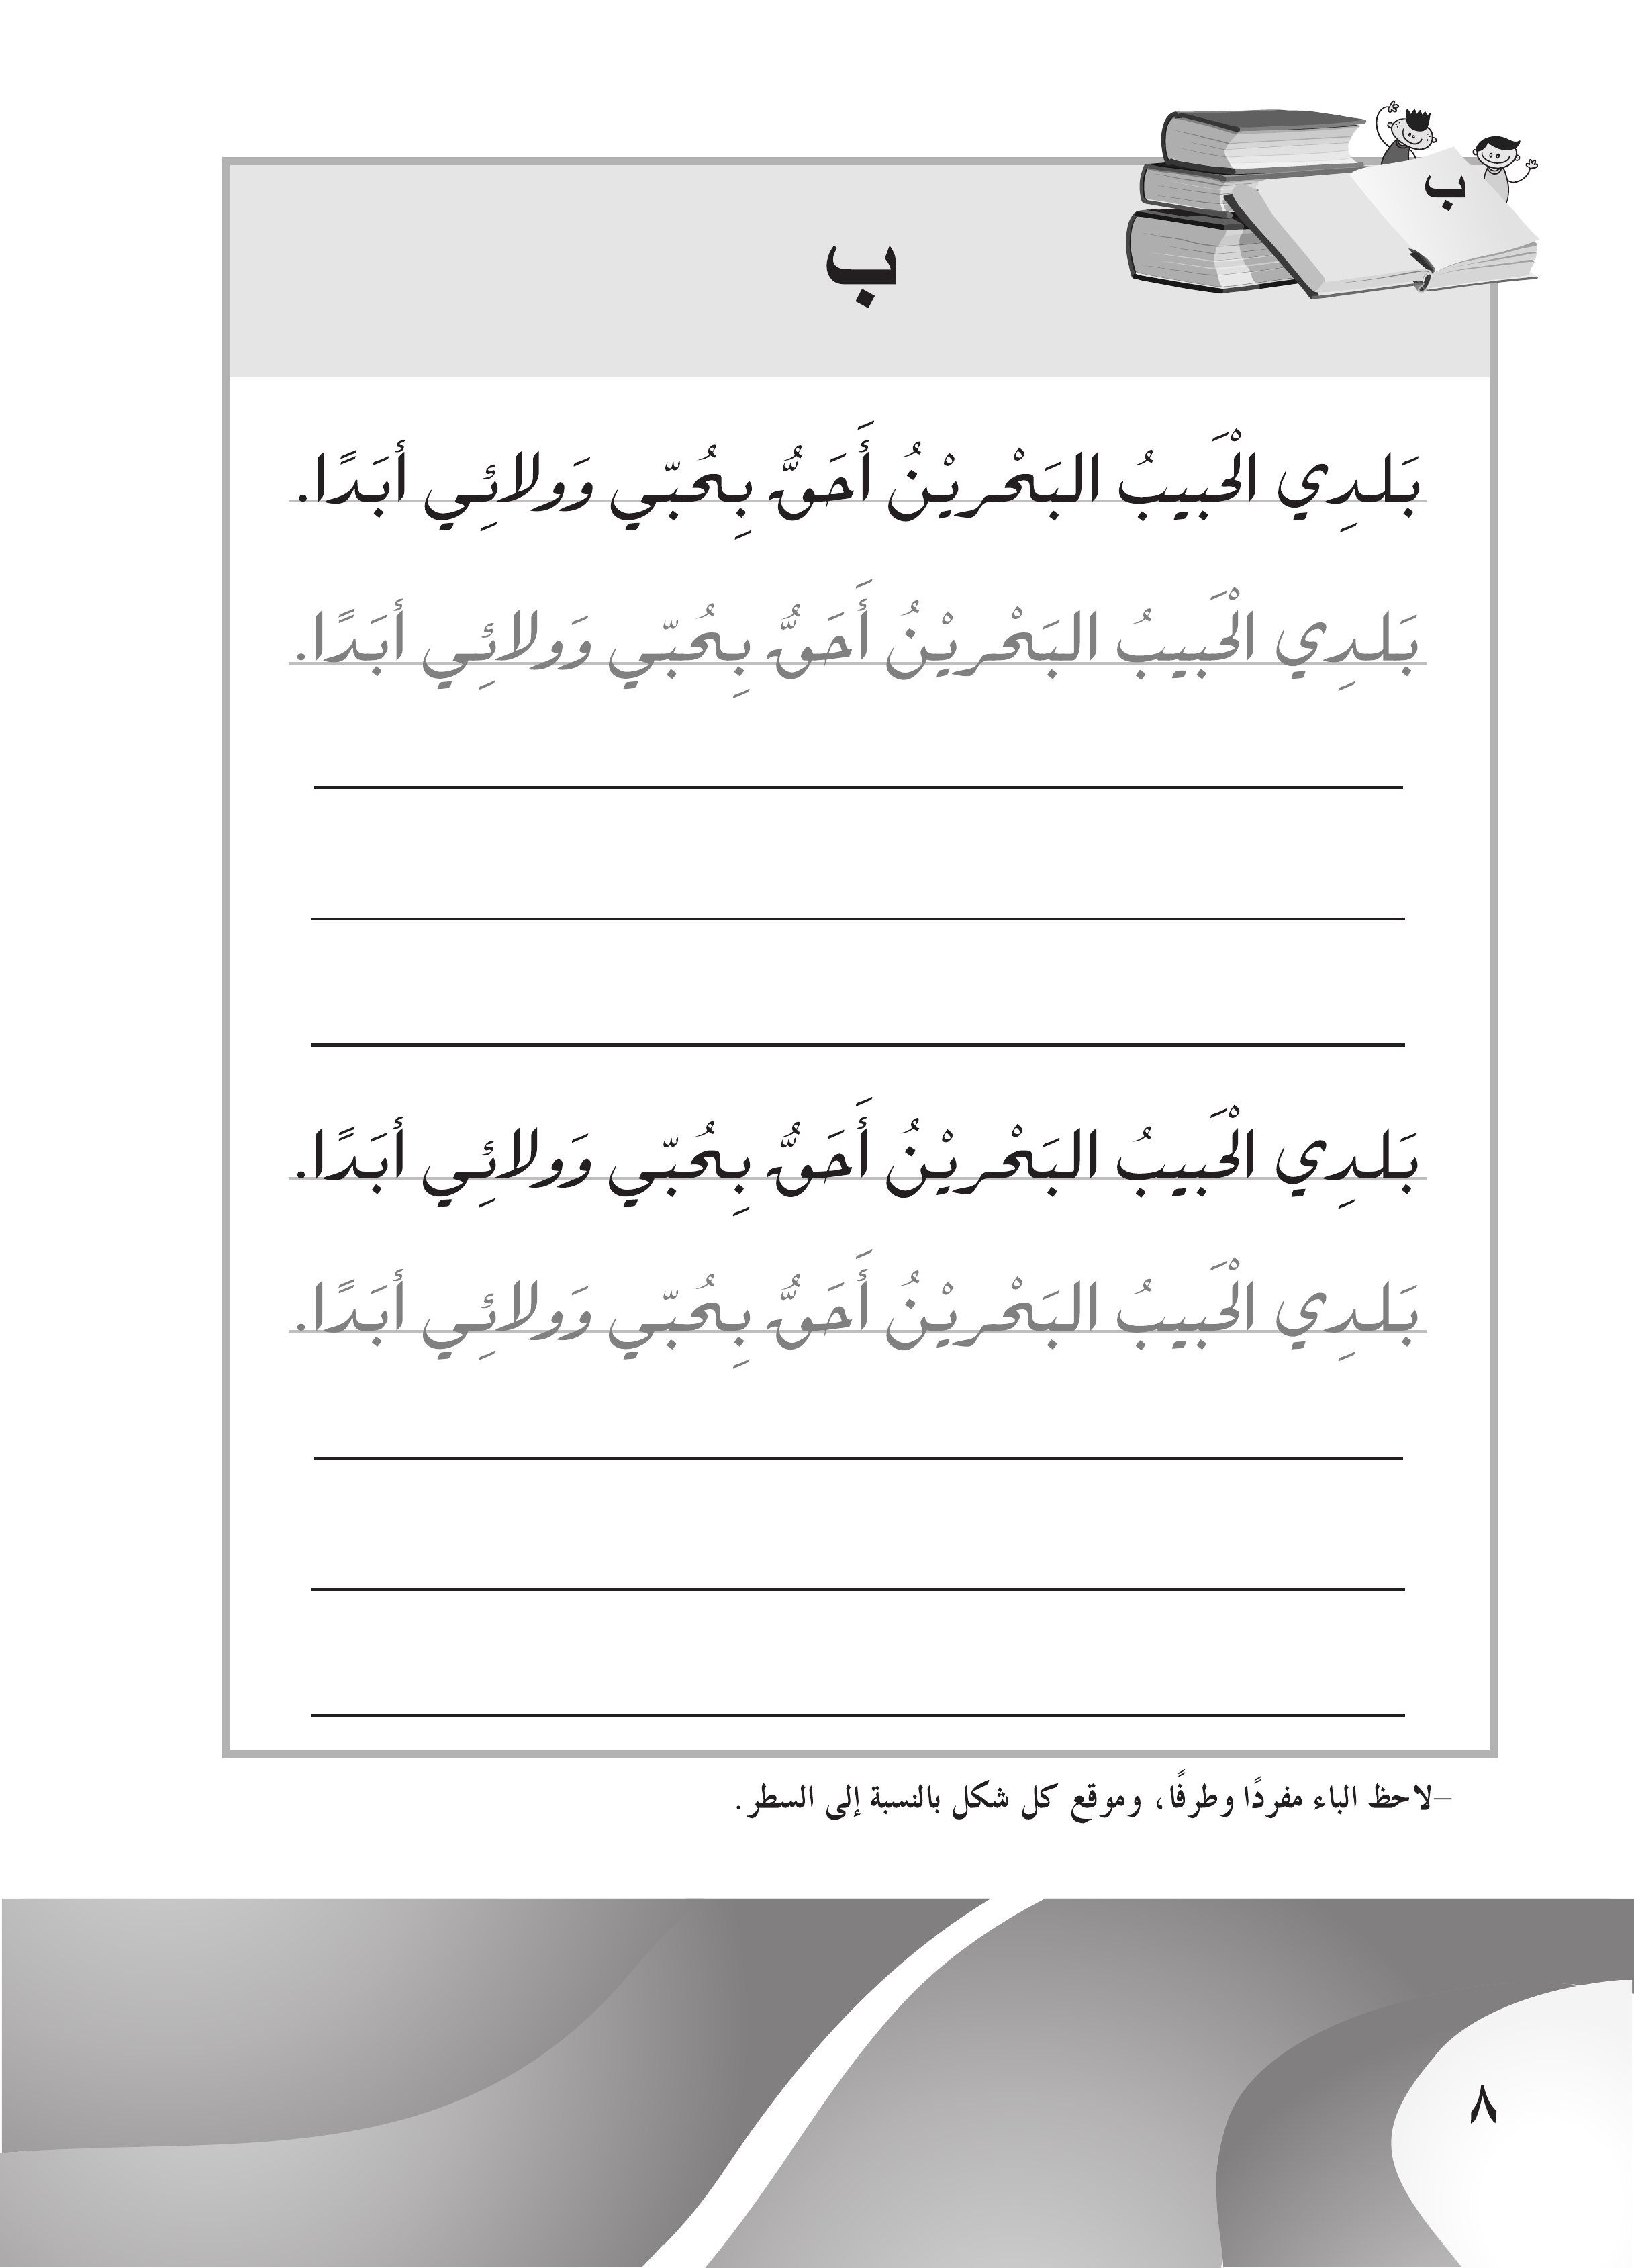 ب
ب
بَلدِي الْحَبيبُ البَحْريْنُ أَحَقُّ بِحُبّي وَولائِي أبَدًا.
بَلدِي الْحَبيبُ البَحْريْنُ أَحَقُّ بِحُبّي وَولائِي أبَدًا.
بَلدِي الْحَبيبُ البَحْريْنُ أَحَقُّ بِحُبّي وَولائِي أبَدًا.
بَلدِي الْحَبيبُ البَحْريْنُ أَحَقُّ بِحُبّي وَولائِي أبَدًا.
–لاحظ الباء مفردًا وطرفًا، وموقع كل شكل بالنسبة إلى السطر.
٨